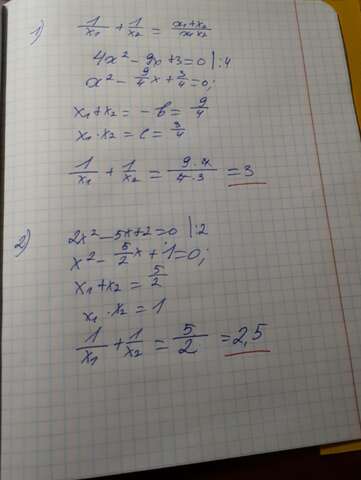 1) 1/x₁ + 1/x₂ = x₁+x₂/x₁x₂
4x² - 9x + 3 = 0 |:4
x² - 9/4x + 3/4 = 0;
x₁ + x₂ = -b = 9/4
x₁ · x₂ = c = 3/4
1/x₁ + 1/x₂ = 9·4/4·3 = 3
2) 2x² - 5x + 2 = 0 |:2
x² - 5/2x + 1 = 0;
x₁ + x₂ = 5/2
x₁ · x₂ = 1
1/x₁ + 1/x₂ = 5/2 = 2,5